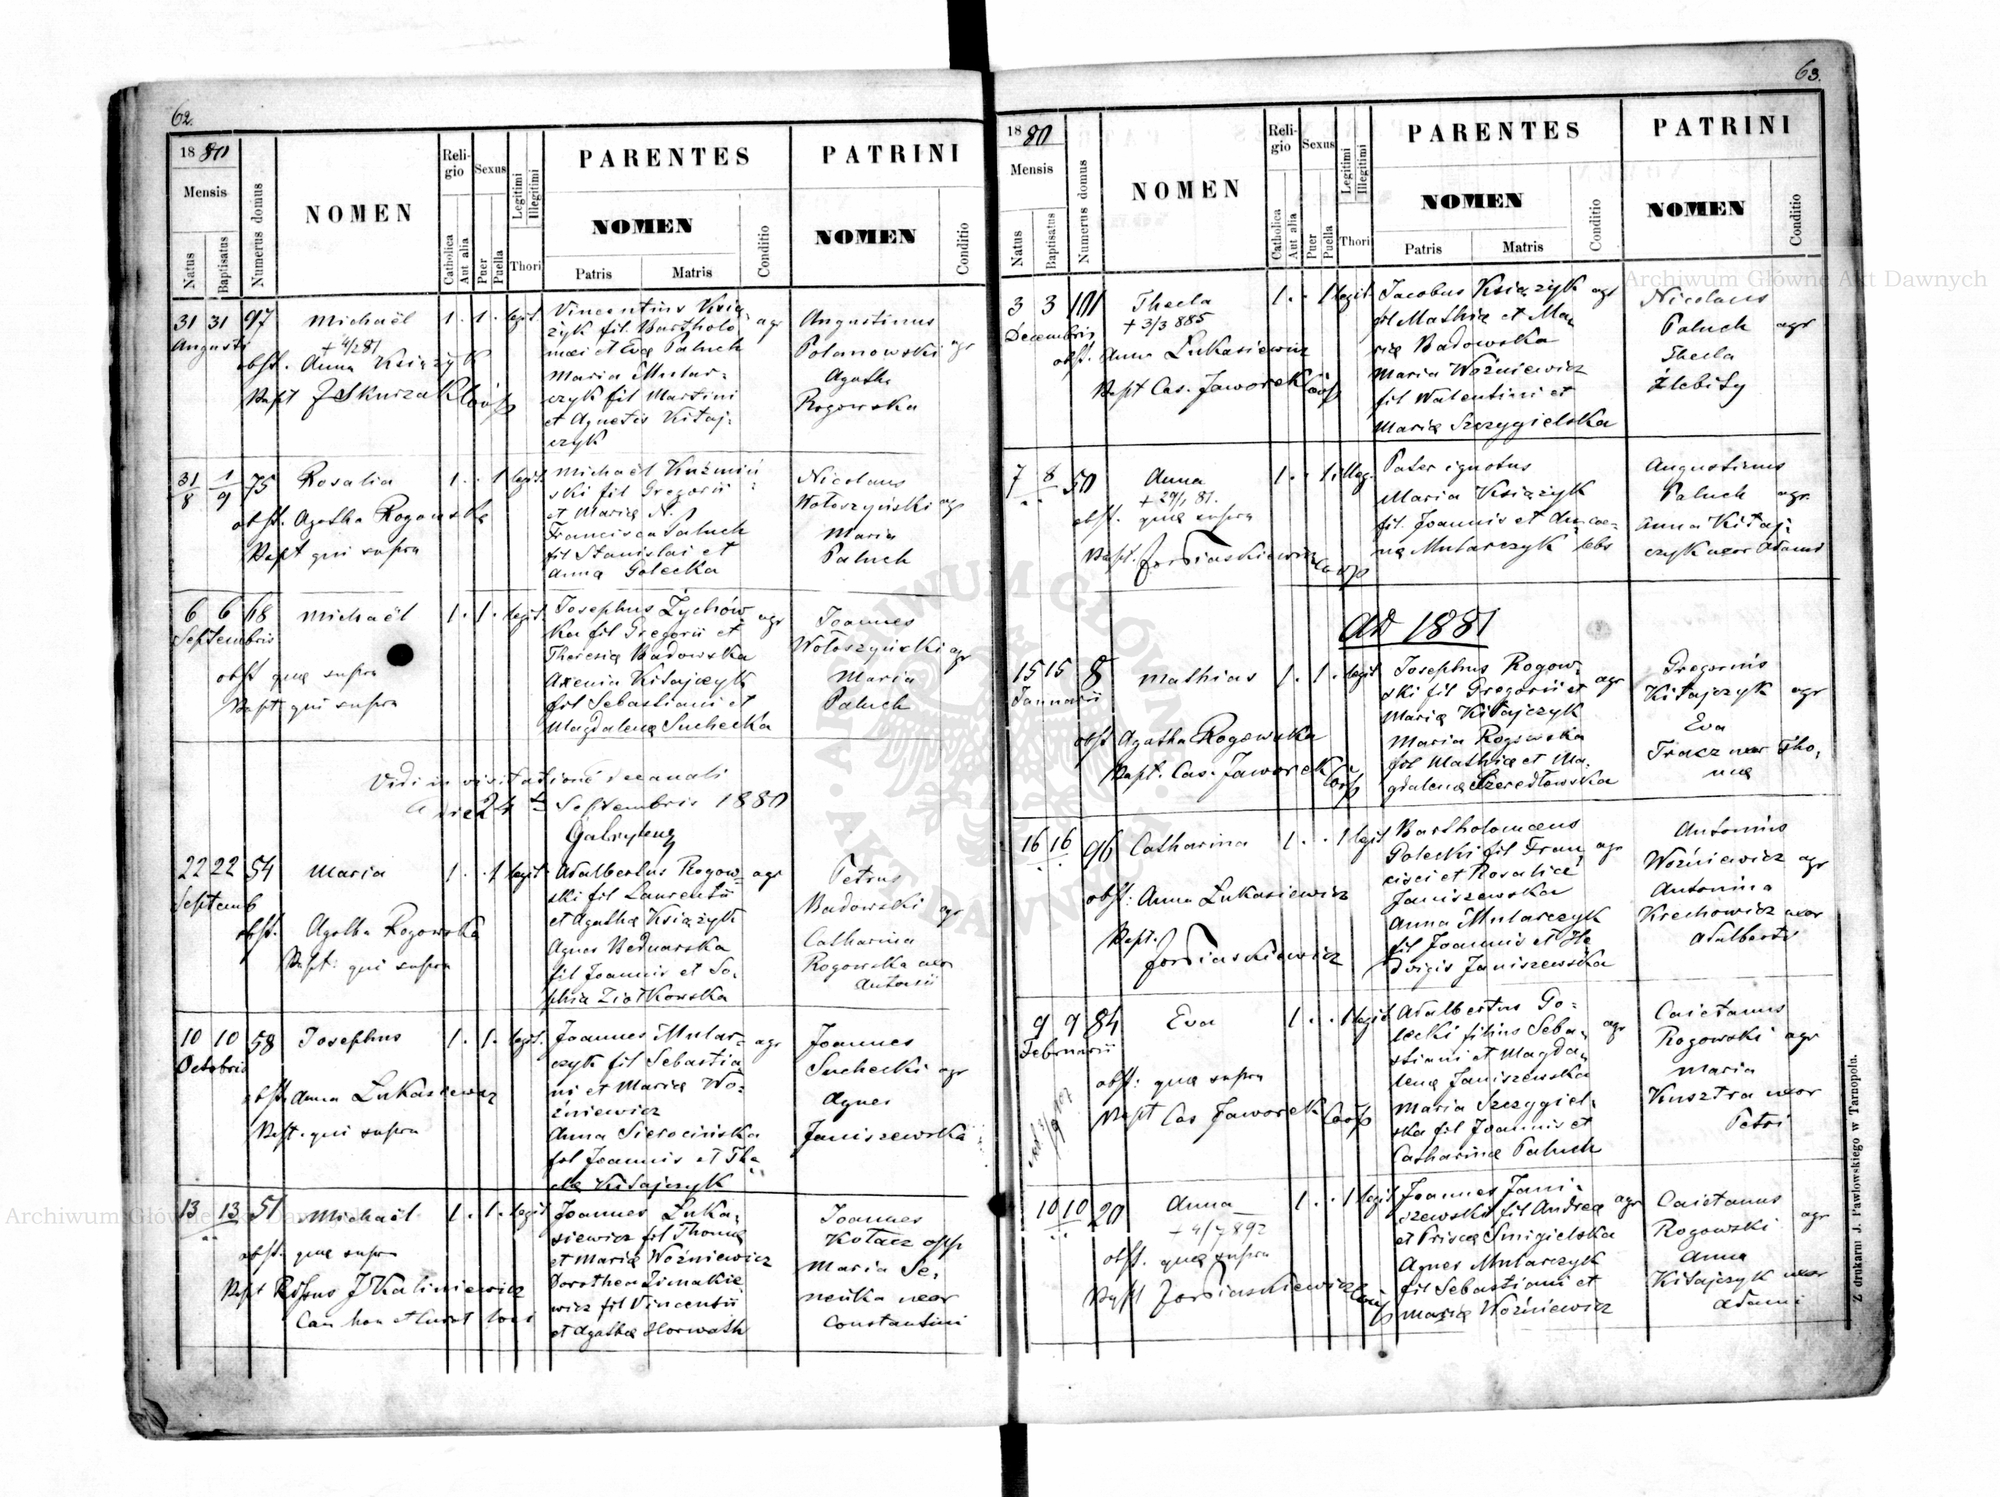 62.
18 80
Mensis
Natus
Baptisatus
Numerus domus
NOMEN
Religio
Catholica
Aut alia
Sexus
Puer
Puella
Legitimi
Illegitimi
Thori
PARENTES
NOMEN
Patris
Matris
Conditio
PATRINI
NOMEN
Conditio
31 31 97 Michaël 1 . 1 . legit.
Augusti
obst. Anna Książyk
Bapt J Skurzak Coop
Vincentius Ksią-
żyk fil. Bartholo- agr
mæi et Eva Paluch
Maria Mular-
czyk fil Martini
et Agnetis Kitaj-
czyk
Augustinus
Polanowski agr
Agatha
Rogowska
31/8 1/9 75 Rosalia 1 . . 1 legit.
obst. Agatha Rogowska
Bapt qui supra
Michaël Kuźmiń-
ski fil Gregorii
et Maria N.
Francisca Paluch
fil Stanislai et
Anna Golecka
Nicolaus
Wołoszyński agr
Maria
Paluch
6 6 68 Michaël 1 . 1 . legit.
Septembris
obst quæ supra
Bapt qui supra
Josephus Żychow- agr
ka fil Gregorii et
Theresia Badowska
Axenia Kitajczyk
fil Sebastiani et
Magdalena Suchecka
Joannes
Wołoszyński agr
Maria
Paluch
Vidi in visitatione decanali
die 24 Septembris 1880
22 22 54 Maria 1 . . 1 legit
Septemb
obst. Agatha Rogowska
Bapt: qui supra
Adalbertus Rogow- agr
ski fil Laurentii
et Agatha Książyk
Agnes Bednarska
fil Joannis et So-
phia Ziółkowska
Petrus
Badowski agr
Catharina
Rogowska uxor
Antonii
10 10 58 Josephus 1 . 1 . legit.
Octobris
obst. Anna Łukasiewicz
Bapt. qui supra
Joannes Mular- agr
czyk fil Sebastia-
ni et Maria Wo-
źniewicz
Anna Sierocińska
fil Joannis et The-
cla Kitajczyk
Joannes
Suchecki agr
Agnes
Janiszewska
13 13 51 Michaël 1 . 1 . legit
obst. quæ supra
Bapt J Kaliniewicz
Can hon et Curat loci
Joannes Łuka-
siewicz fil Thoma
et Maria Woźniewicz
Dorothea
wicz fil Vincentii
et Agatha Horwath
Joannes
Kołacz opp
Maria Se-
neńka uxor
Constantini
63.
18 80
Mensis
Natus
Baptisatus
Numerus domus
NOMEN
Religio
Catholica
Aut alia
Sexus
Puer
Puella
Legitimi
Illegitimi
Thori
PARENTES
NOMEN
Patris
Matris
Conditio
PATRINI
NOMEN
Conditio
3 3 101 Thecla 1 . . 1 legit.
Decembris + 3/3 885
obst. Anna Łukasiewicz
Bapt Cas. Jaworek Coop
Jacobus Książyk agr
fil Mathia et Ma-
ria Badowska
Maria Woźniewicz
fil Walentini et
Maria Szczygielska
Nicolaus
Paluch agr
Thecla
7 8 50 Anna 1 . . 1 illeg.
+ 29/1 81.
obst. quæ supra
Bapt. Coop
Pater ignotus
Maria Książyk
fil. Joannis et An- coe-
na Mularczyk lebs
Augustinus
Paluch agr.
Anna Kitaj-
czyk uxor Adami
AD 1881
15 15 8 Mathias 1 . 1 . legit
Januarii
obst Agatha Rogowska
Bapt. Cas. Jaworek Coop
Josephus Rogow- agr
ski fil Gregorii et
Maria Kitajczyk
Maria Rogowska
fil Mathia et Ma-
gdalena Szeredłowska
Gregorius
Kitajczyk agr
Eva
Tracz uxor Tho-
mæ
16 16 96 Catharina 1 . . 1 legit
obst: Anna Łukasiewicz
Bapt.
Bartholomæus
Golecki fil Fran- agr
cisci et Rosalia
Janiszewska
Anna Mularczyk
fil Joannis et He-
dvigis Janiszewska
Antonius
Woźniewicz agr
Antonina
Krechowicz uxor
Adalberti
9 9 84 Eva 1 . . 1 legit
Februarii
obst: quæ supra
Bapt Cas Jaworek Coop
Adalbertus Go-
lecki filius Seba- agr
stiani et Magda-
lena Janiszewska
Maria Szczygiel-
ska fil Joannis et
Catharina Paluch
Caietanus
Rogowski agr
Maria
Kusztra uxor
Petri
10 10 20 Anna 1 . . 1 legit
+ 4/7 892
obst. quæ supra
Bapt Coop
Joannes Jani-
szewski fil Andrea agr
et Prisca Smigielska
Agnes Mularczyk
fil Sebastiani et
Maria Woźniewicz
Caietanus
Rogowski agr
Anna
Kitajczyk uxor
Adami
Z drukarni J. Pawłowskiego w Tarnopolu.
Archiwum Główne Akt Dawnych
Archiwum Główne Akt Dawnych
ARCHIWUM GŁÓWNE AKT DAWNYCH